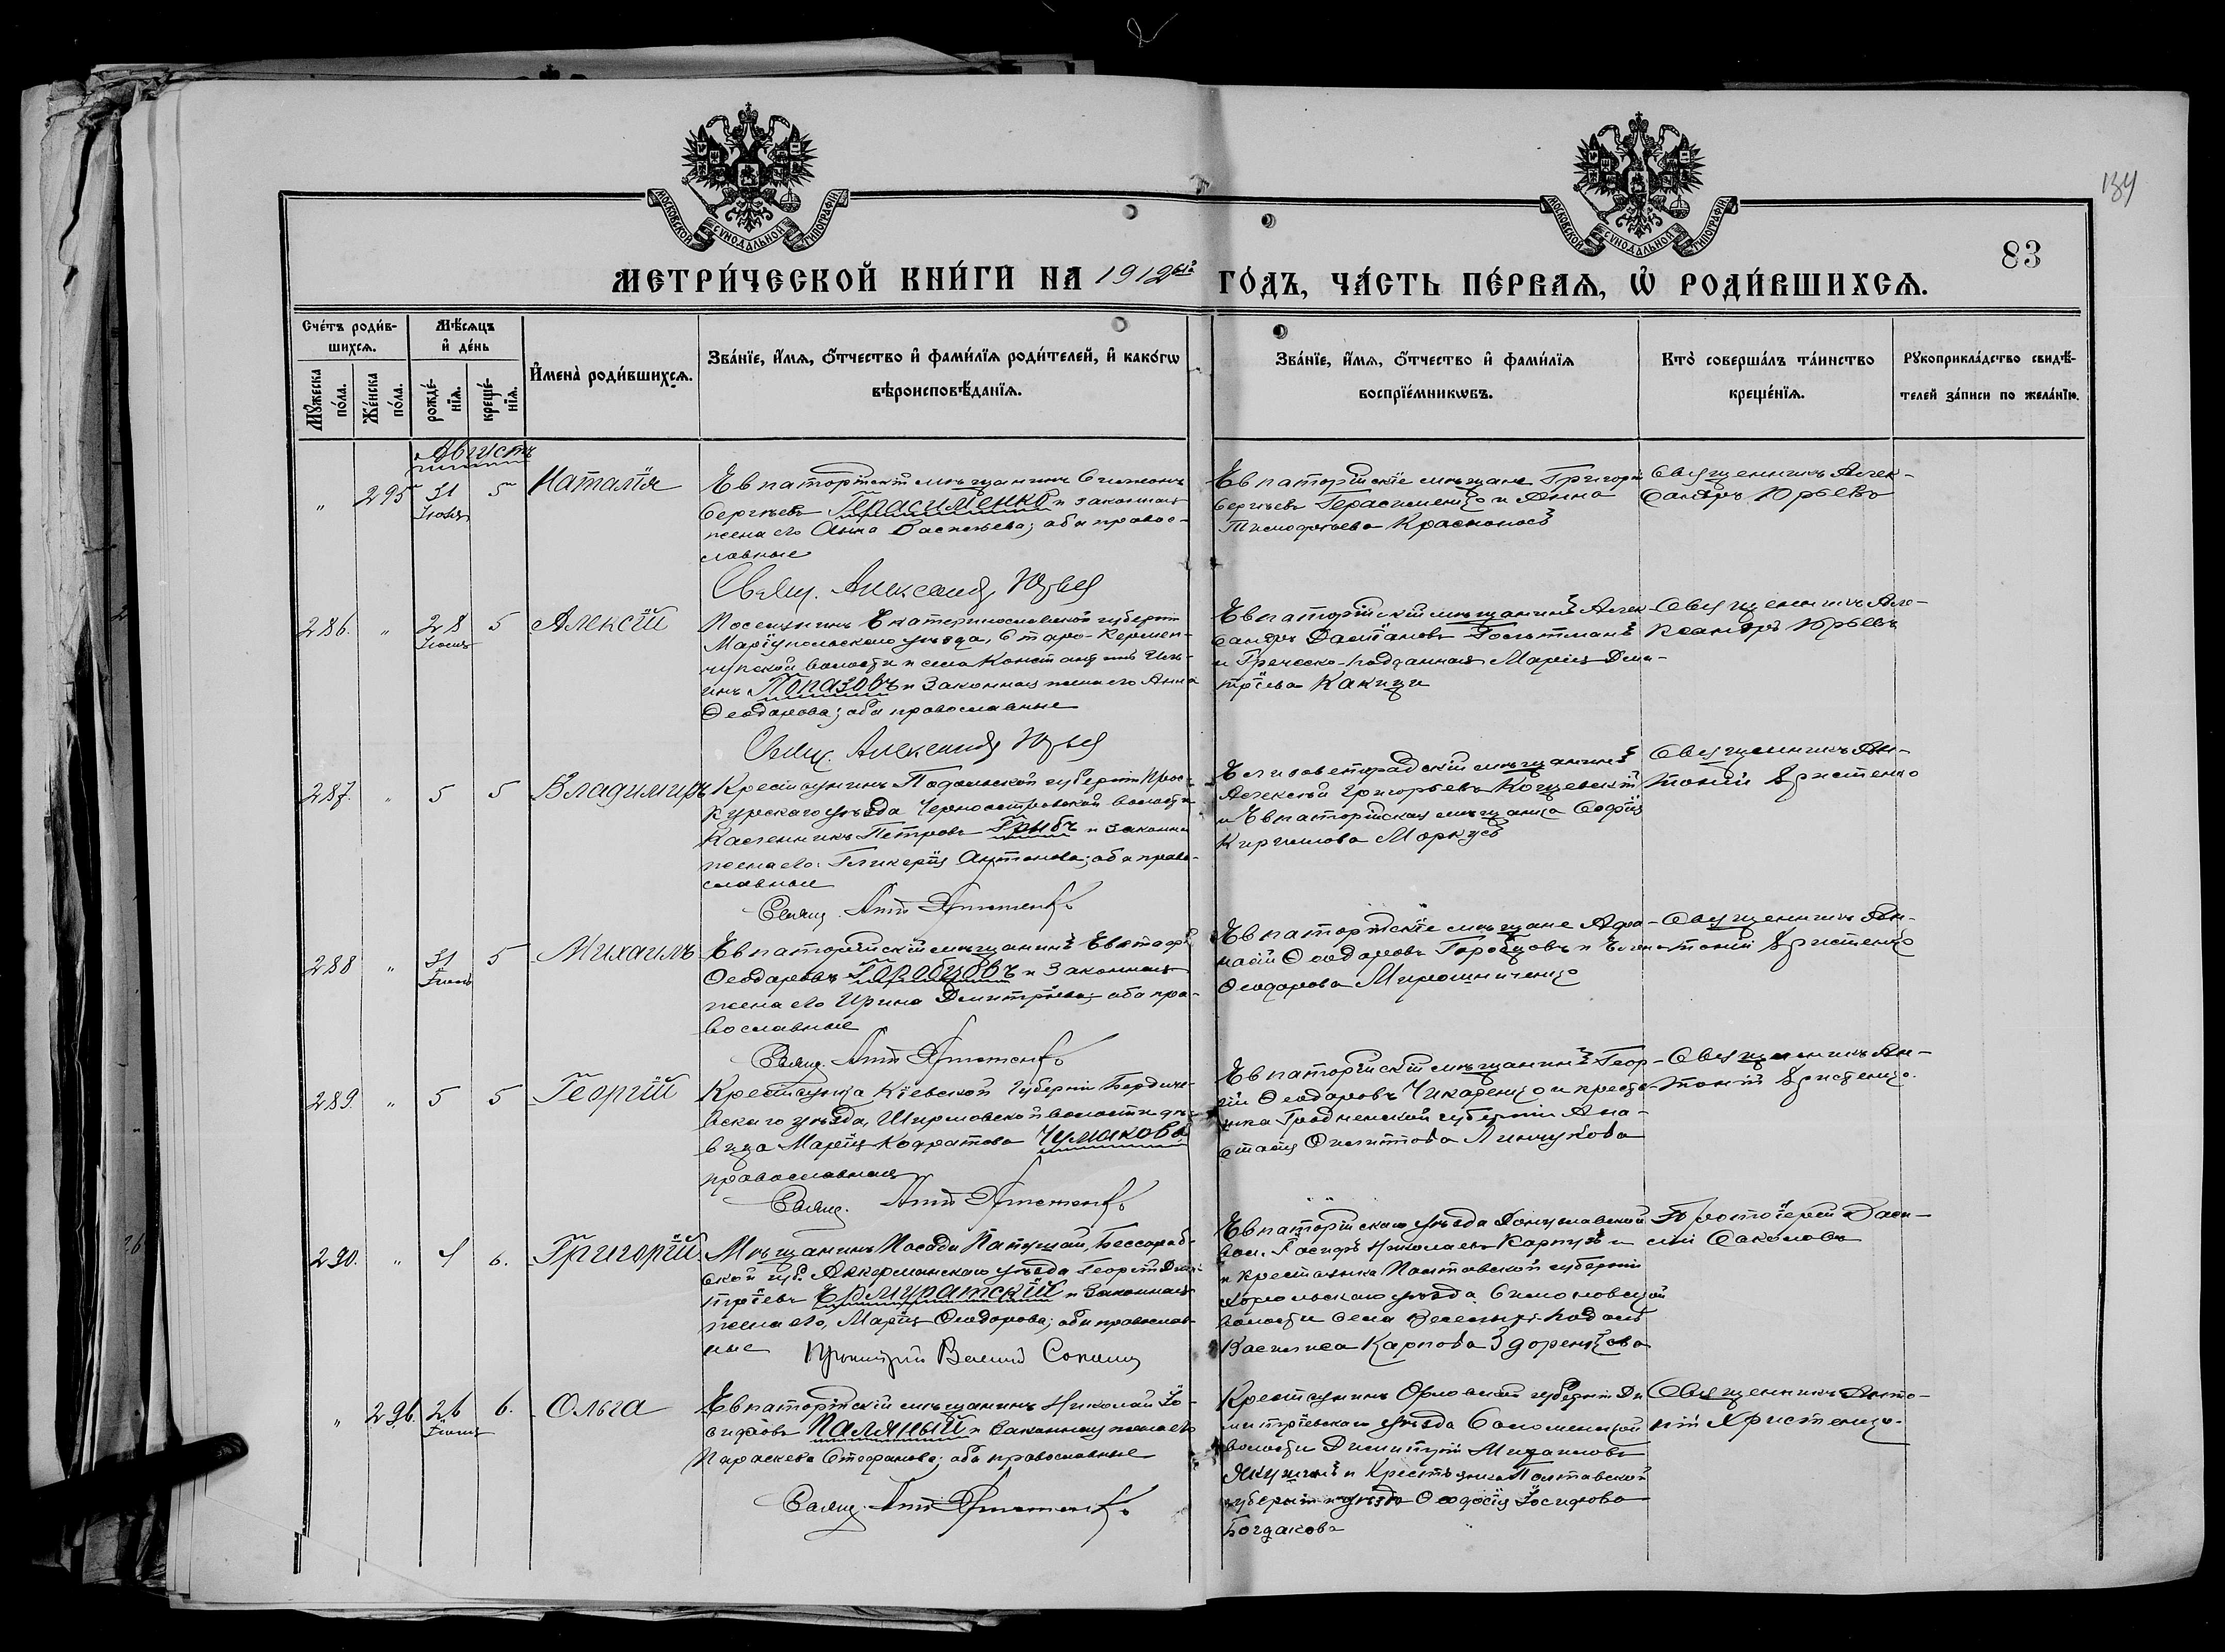 134
83
МОСКОВСКОЙ СѴНОДАЛЬНОЙ ТИПОГРАФІИ
МОСКОВСКОЙ СѴНОДАЛЬНОЙ ТИПОГРАФІИ
МЕТРИ́ЧЕСКОЙ КНИ́ГИ НА 1912 ГО́ДЪ, ЧА́СТЬ ПЕ́РВАѦ, Ѡ҆ РОДИ́ВШИХСѦ.
Сче́тъ роди́в-
шихсѧ.
Мꙋ́жеска
по́ла.
Же́нска
по́ла.
Мѣ́сѧцъ
и҆ де́нь
рожде́-
нїѧ.
креще́-
нїѧ.
И҆мена̀ роди́вшихсѧ.
Зва́нїе, и҆́мѧ, ѻ҆́тчество и҆ фами́лїѧ роди́телей, и҆ како́гѡ
вѣроисповѣ́данїѧ.
Зва́нїе, и҆́мѧ, ѻ҆́тчество и҆ фами́лїѧ
воспрїе́мникѡвъ.
Кто̀ соверша́лъ та́инство
креще́нїѧ.
Рꙋкоприкла́дство свидѣ́-
телей за́писи по жела́нїю.
Августъ
„ 295 31 5 Наталія
Іюля
Евпаторійскій мѣщанинъ Симеонъ
Сергѣевъ Герасименко и законная
жена его Анна Васильева; оба правос-
лавные
Свящ. Александр Юрьев
Евпаторійскіе мѣщане Григорій
Сергѣевъ Герасименко и Анна
Тимофеева Красно
Священникъ Алек-
сандръ Юрьевъ
286. „ 28 5 Алексій
Іюля
Поселянинъ Екатеринославской губерніи
Маріупольскаго уѣзда, Старо-Кермен-
чукской волости и села Константинъ Иль-
инъ Попазовъ и законная жена его Анна
Ѳеодорова; оба православные
Свящ. Александр Юрьев
Евпаторійскій мѣщанинъ Алек-
сандръ Даміановъ
и Греческо-подданная Марія Дми-
тріева Какизи
Священникъ Але-
ксандръ Юрьевъ
287. „ 5 5 Владимиръ
Крестьянинъ Подольской губерніи Прос-
куровскаго уѣзда Черноостровской волости
Каленникъ Петровъ Грыбъ и законная
жена его Гликерія Антонова; оба право-
славные
Свящ. Ант Аристенко
Елисаветградскій мѣщанинъ
Алексѣй Григорьевъ Коцевскій
и Евпаторійская мѣщанка Софія
Кириллова Маркусъ
Священникъ Ан-
тоній Христенко
288 „ 31 5 Михаилъ
Іюля
Евпаторійскій мѣщанинъ Евстафій
Ѳеодоровъ Горобцовъ и законная
жена его Ирина Димитріева; оба пра-
вославные
Свящ. Ант Христенко
Евпаторійскіе мѣщане Афа-
насій Ѳеодоровъ Горобцовъ и Елена
Ѳеодорова Мирошниченко
Священникъ Ан-
тоній Христенко
289. „ 5 5 Георгій
Крестьянка Кіевской губерніи Бердиче-
вскаго уѣзда, Ширмовской волости дѣ-
вица Марія Кодратова Чумакова
православная
Свящ. Ант Христенко
Евпаторійскій мѣщанинъ Геор-
гій Ѳеодоровъ Чикаренко и крестья-
нка Гродненской губерніи Ана-
стасія Филиппова Линчукова
Священникъ Ан-
тоній Христенко
290. „ 4 6. Григорій
Мѣщанинъ Посада Папушой, Бессараб-
ской губ. Аккерманскаго уѣзда Георгій Дми-
тріевъ Ермуратскій и законная
жена его, Марія Ѳеодорова; оба православ-
ные
Протоіерей Василій Соколов
Евпаторійскаго уѣзда Донузлавской
вол. Іосифъ Николаевъ Карпузъ
и крестьянка Полтавской губерніи
Хорольскаго уѣзда Симоновской
волости села Веселый Подолъ
Василиса Карпова Здоренкова
Протоіерей Васи-
лій Соколовъ
„ 296. 26 6. Ольга
Іюля
Евпаторійскій мѣщанинъ Николай Іо-
сифовъ Паляный и законная жена его
Параскева Стефанова; оба православные
Свящ. Ант Христенко
Крестьянинъ Орловской губерніи Ди-
митріевскаго уѣзда Соломенской
волости Димитрій Михаиловъ
Якушинъ и крестьянка Полтавской
губерніи и уѣзда Ѳеодосія Іосифова
Богдакова
Священникъ Анто-
ній Христенко.